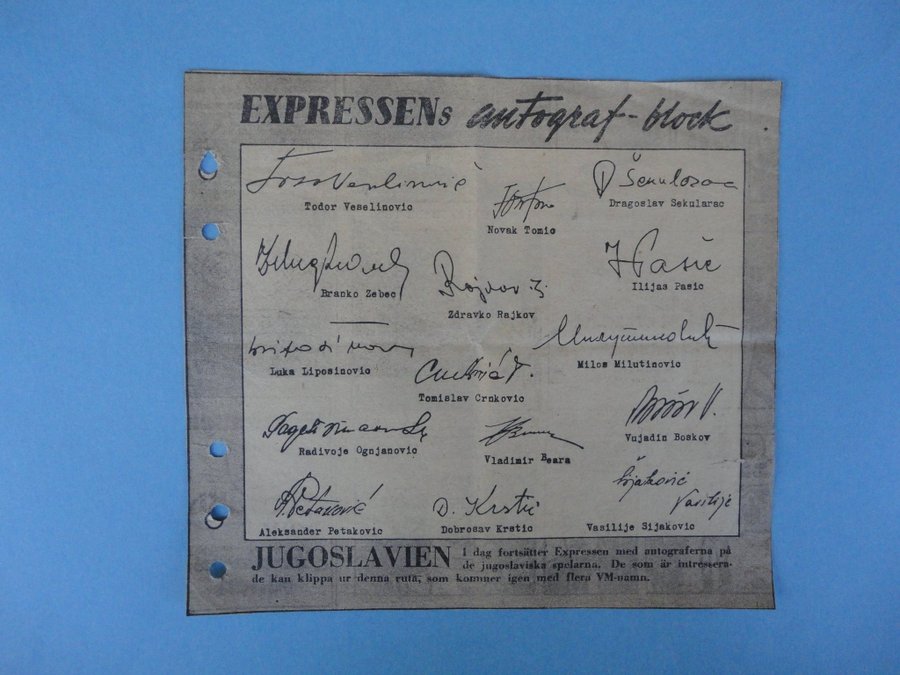 EXPRESSENs autograf-block
Todor Veselinovic
D Šekularac
Dragoslav Sekularac
Novak Tomic
Branko Zebec
Rajkov Z.
Zdravko Rajkov
I Pašic
Ilijas Pasic
Luka Liposinovic
Milos Milutinovic
Tomislav Crnkovic
Radivoje Ognjanovic
Vladimir Beara
Vujadin Boskov
A Petaković
Aleksander Petakovic
D. Krstić
Dobrosav Krstic
Šijaković
Vasilije
Vasilije Sijakovic
JUGOSLAVIEN
I dag fortsätter Expressen med autograferna på
de jugoslaviska spelarna. De som är intressera-
de kan klippa ur denna ruta, som kommer igen med flera VM-namn.